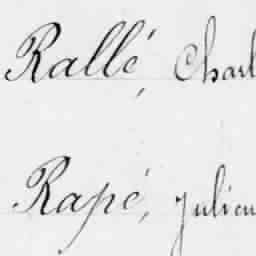 Rallé, Charl
Rapé, Julien